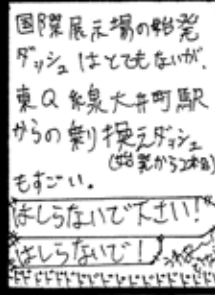 国際展示場の始発
ダッシュはとてもないが、
東Q線大井町駅
からの乗り換えダッシュ
(始発から2本目)
もすごい。
はしらないで下さい!
はしらないで!